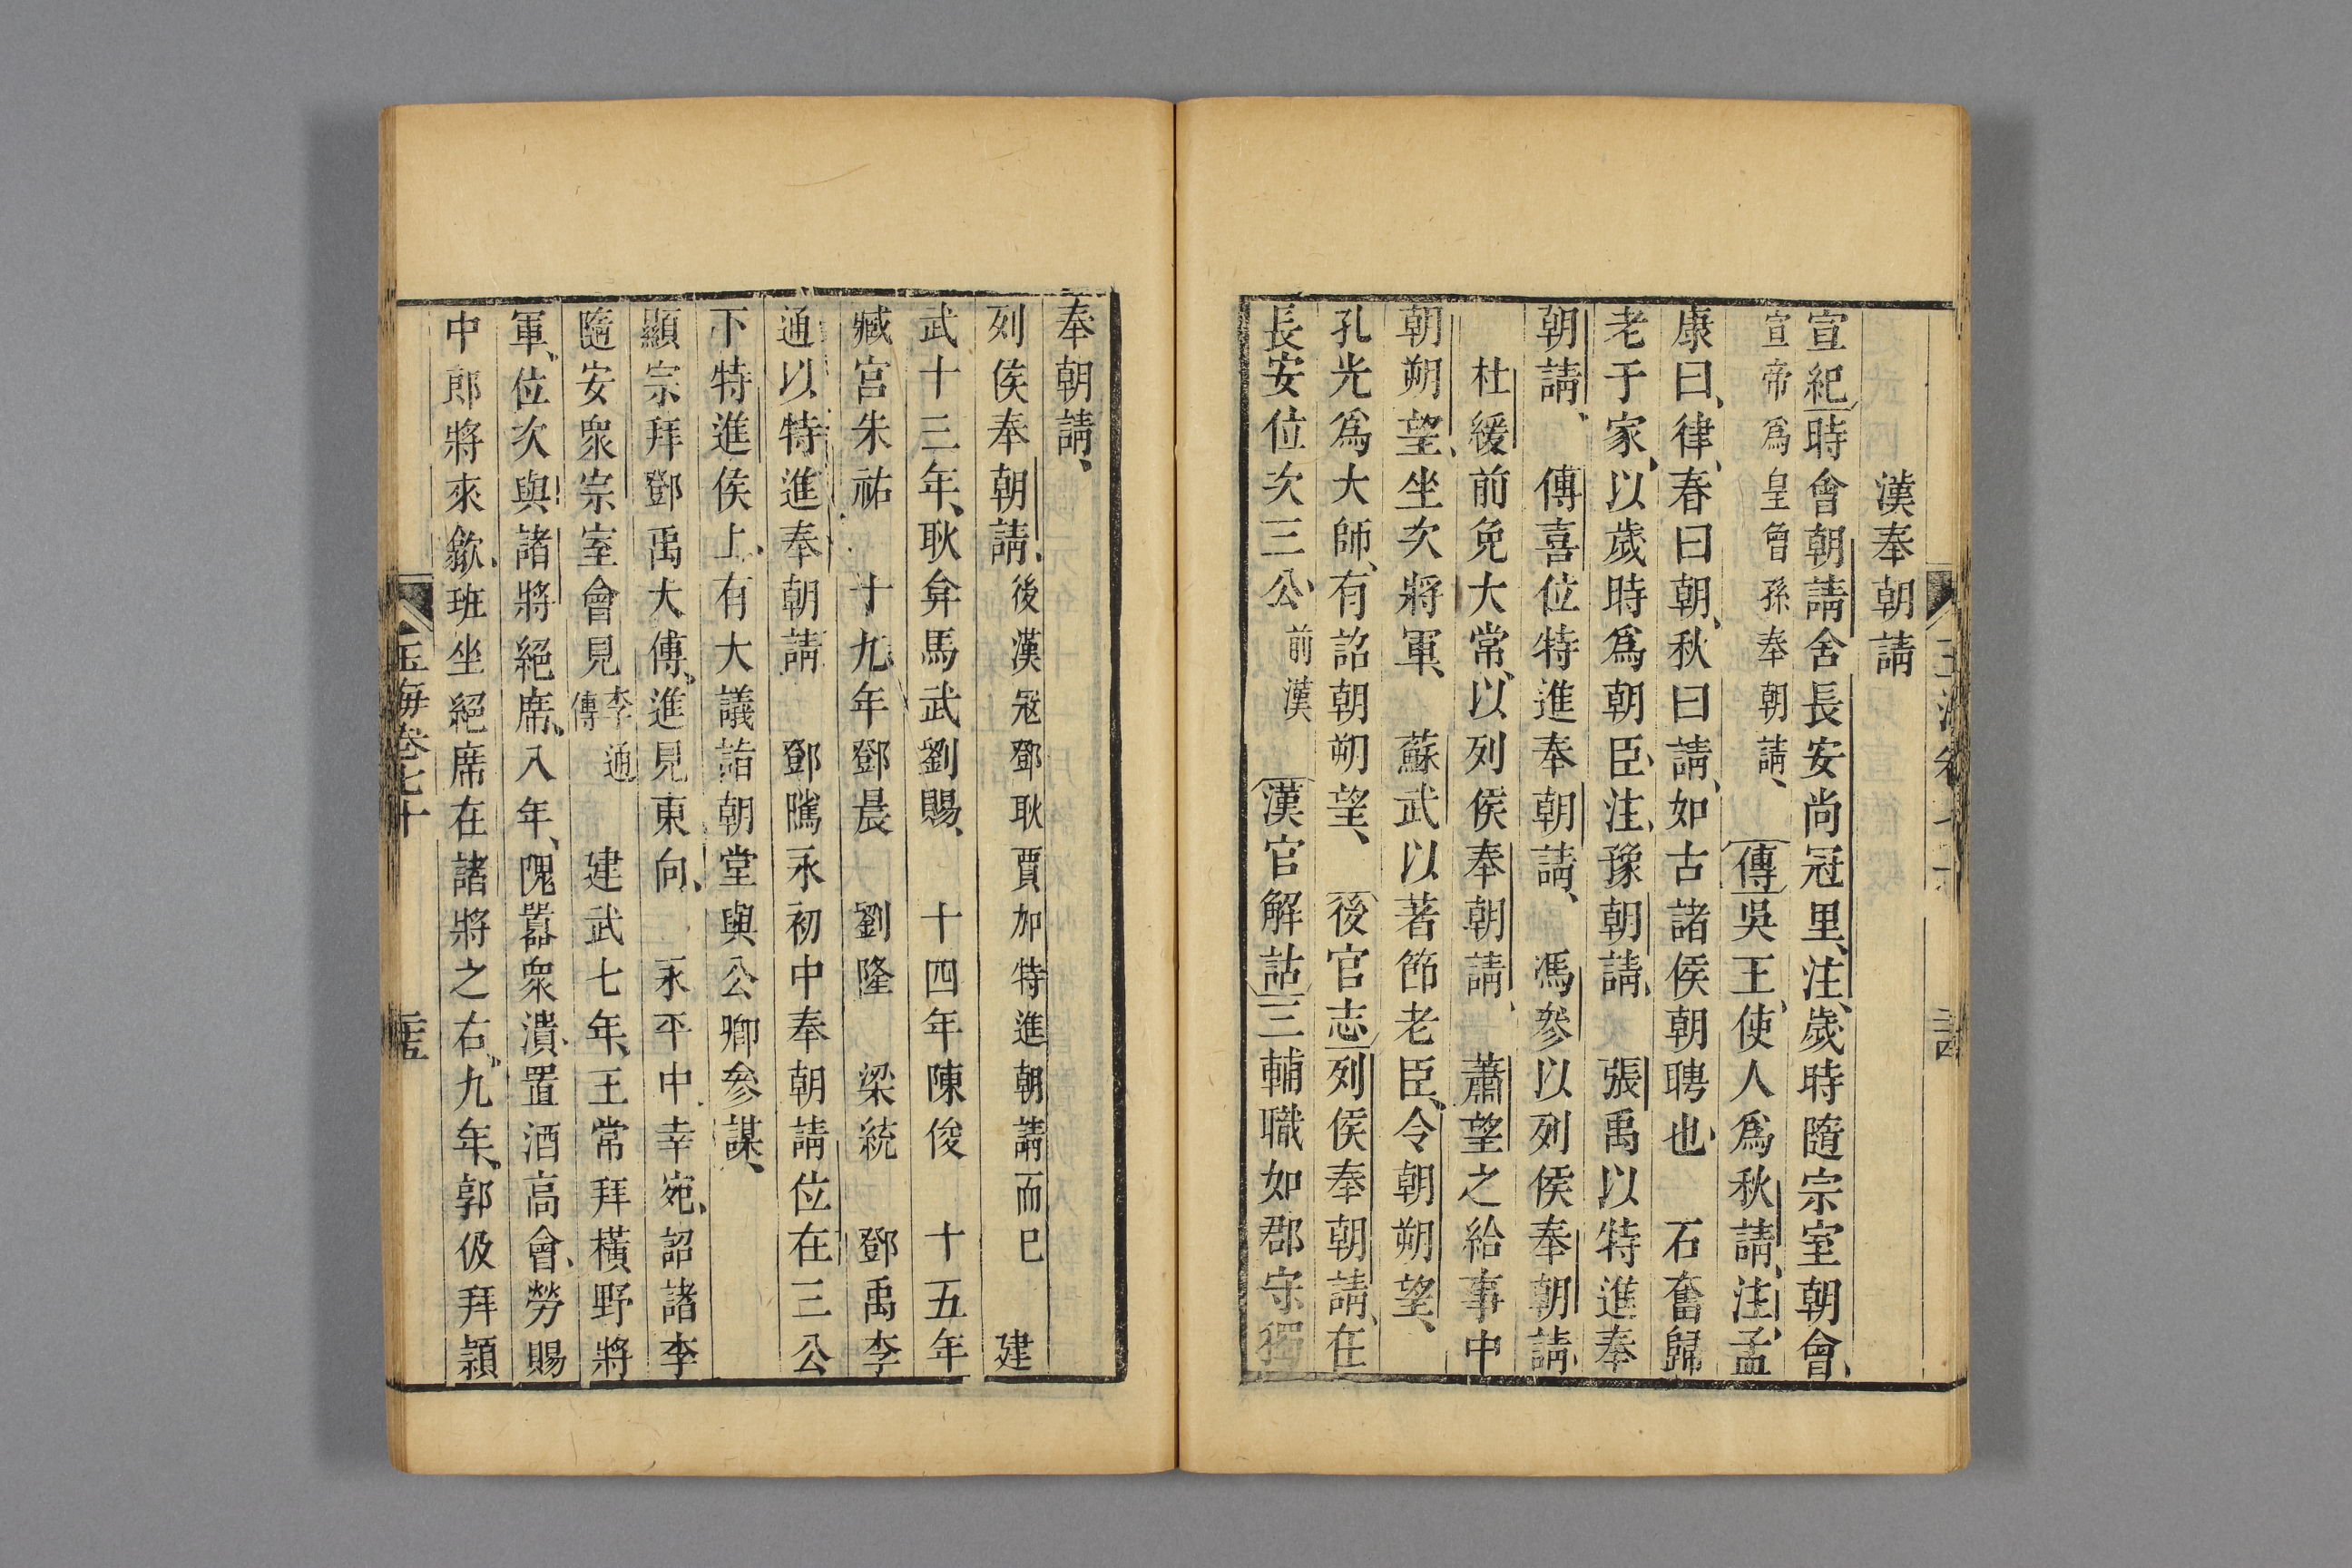 漢奉朝請
宣紀時會朝請舍長安尚冠里注歲時隨宗室朝會
宣帝爲皇曾孫奉朝請傳吳王使人爲秋請注孟
康曰律春曰朝秋曰請如古諸侯朝聘也石奮歸
老于家以歲時爲朝臣注豫朝請張禹以特進奉
朝請傅喜位特進奉朝請馮參以列侯奉朝請
杜緩前免大常以列侯奉朝請蕭望之給事中
朝朔望坐次將軍蘇武以著節老臣令朝朔望
孔光爲大師有詔朝朔望後官志列侯奉朝請在
長安位次三公前漢漢官解詁三輔職如郡守獨
奉朝請
列侯奉朝請後漢冦鄧耿賈加特進朝請而已建
武十三年耿弇馬武劉賜十四年陳俊十五年
臧宮朱祐十九年鄧晨劉隆梁統鄧禹李
通以特進奉朝請鄧騭永初中奉朝請位在三公
下特進侯上有大議詣朝堂與公卿參謀
顯宗拜鄧禹大傅進見東向永平中幸宛詔諸李
隨安衆宗室會見李通傳建武七年王常拜橫野將
軍位次與諸將絕席入年隗囂衆潰置酒高會勞賜
中郎將來歙班坐絕席在諸將之右九年郭伋拜潁
玉海卷七十